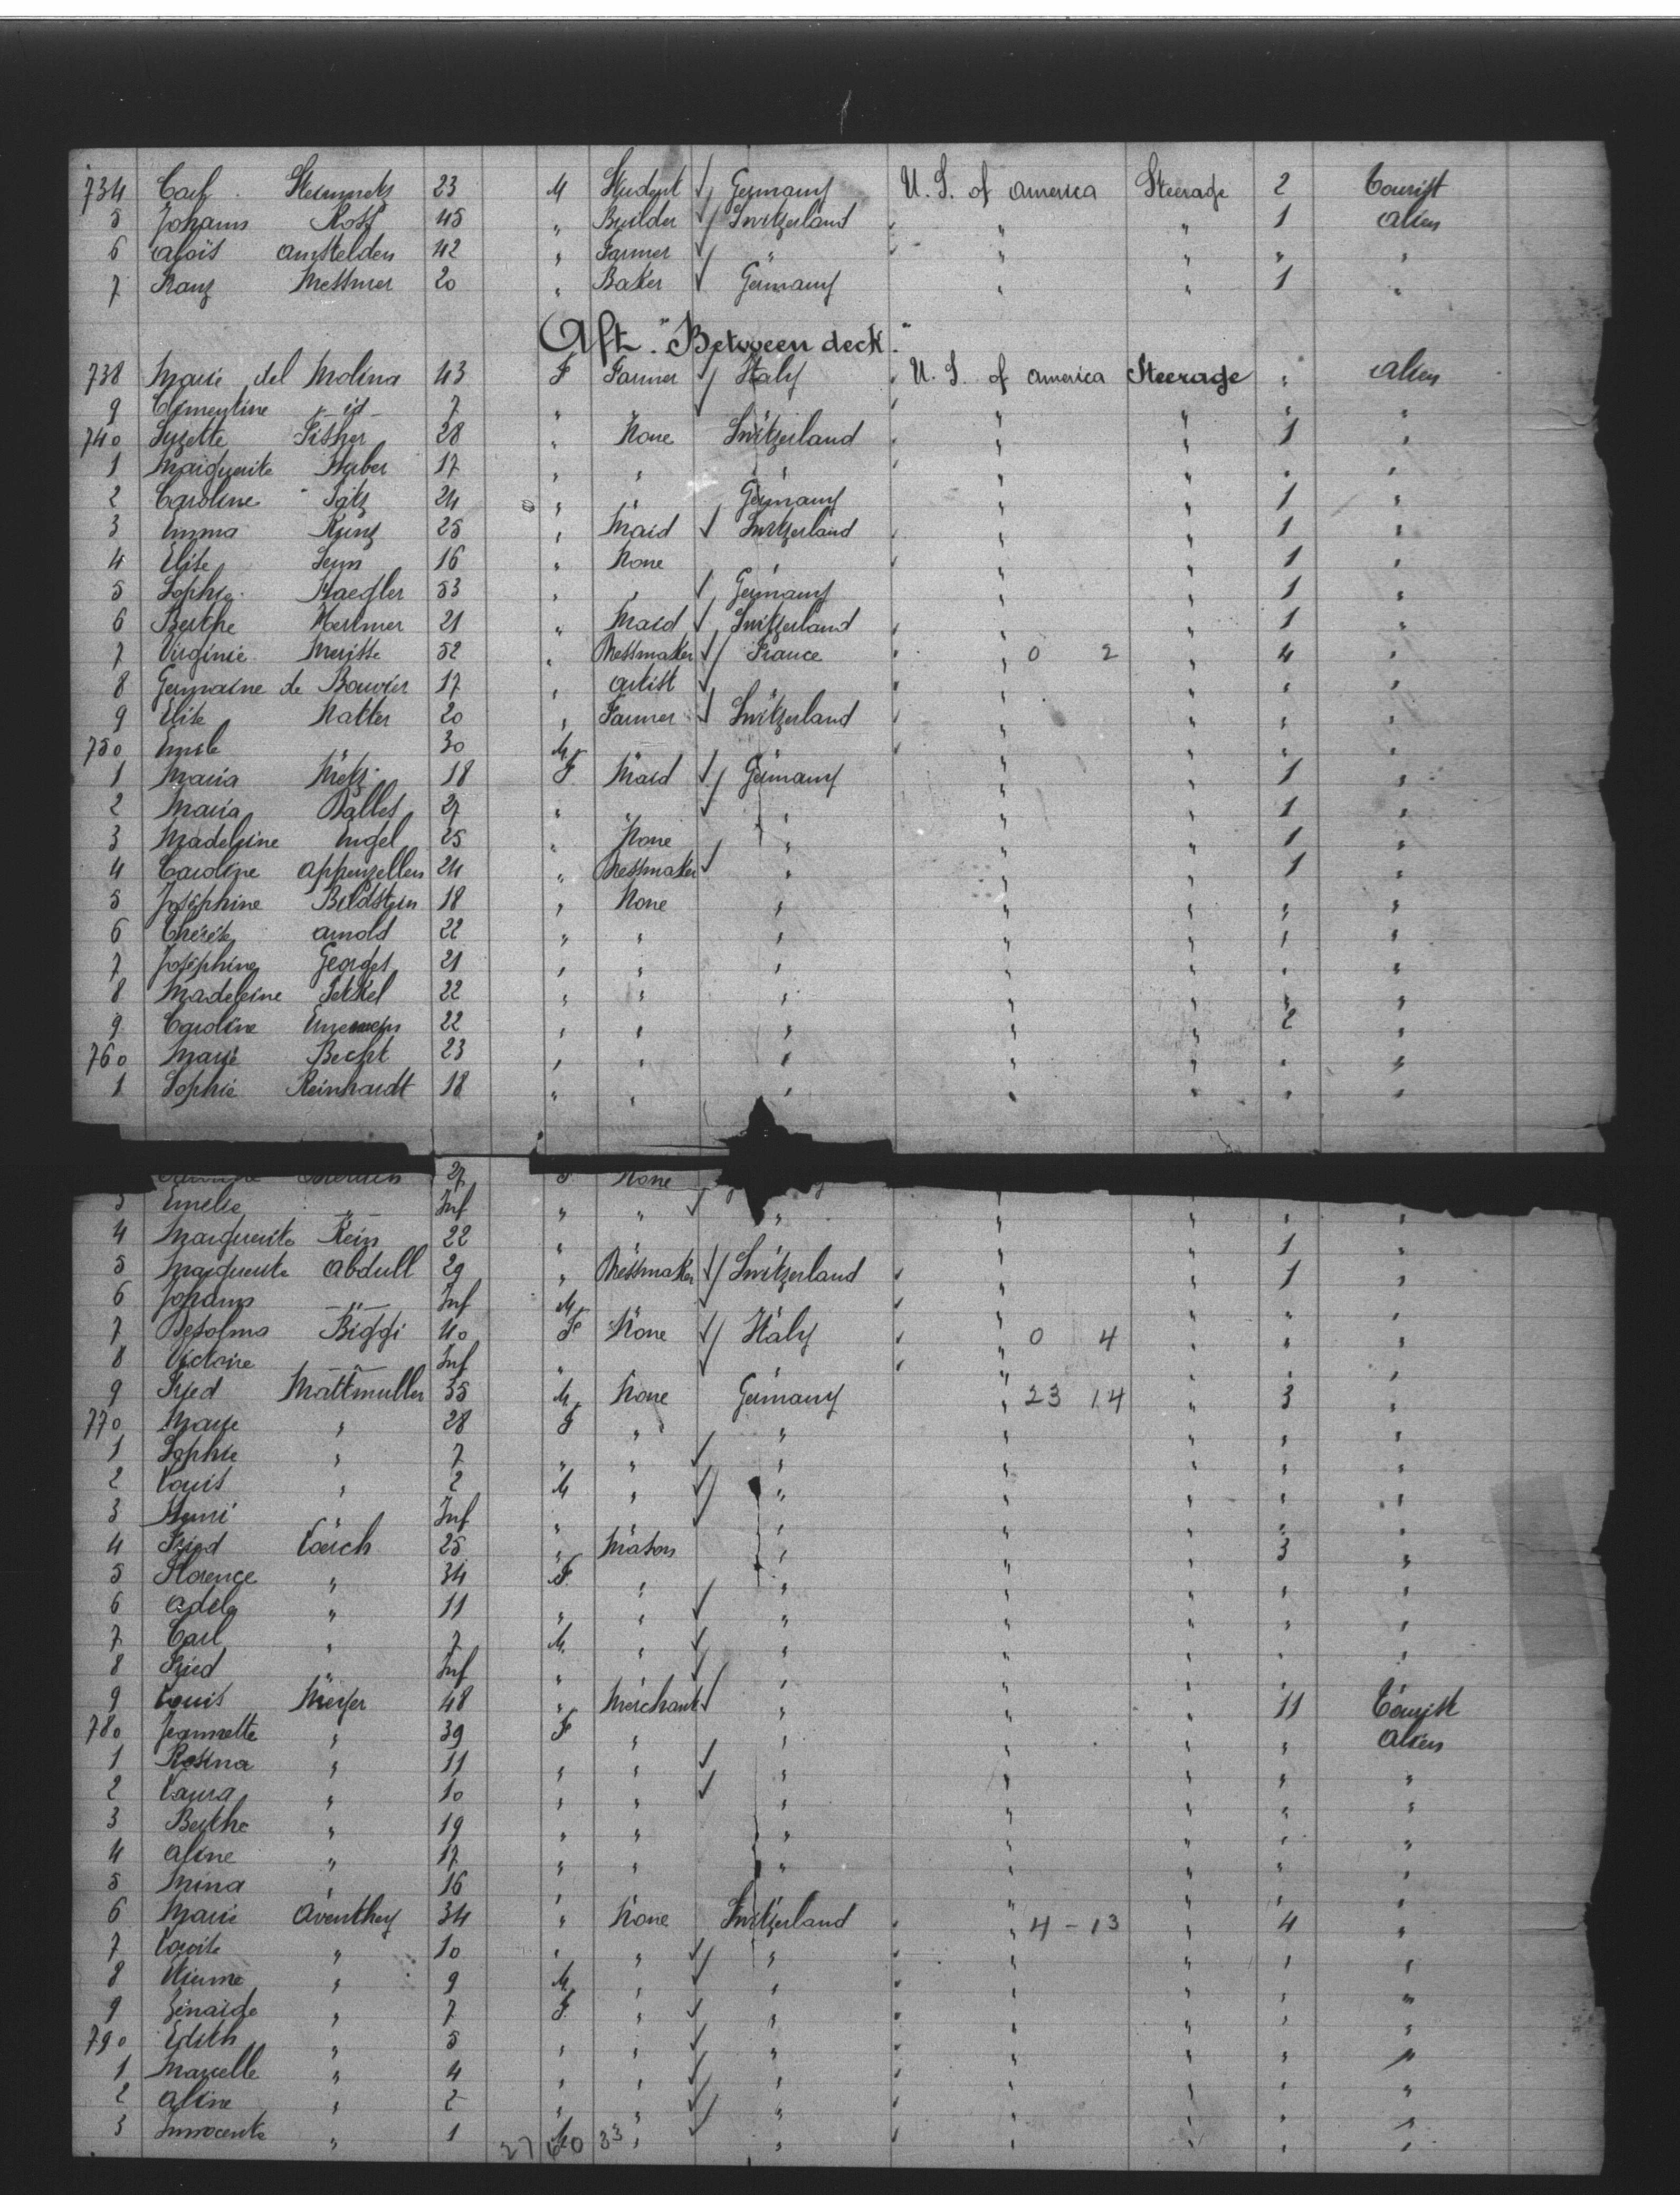 734 Carl Steinmetz 23 M Student Germany U. S. of America Steerage 2 Tourist
5 Johann Rossi 45 " Builder Switzerland " " 1 Alien
6 Alois Amstelden 42 " Farmer " " " " "
7 Franz Messmer 20 " Baker Germany " " 1 "
Aft. "Between deck."
738 Marie del Molina 43 F Farmer Italy U. S. of America Steerage " Alien
9 Clementine - id - 7 " " " " " " "
740 Suzette Fisher 28 " None Switzerland " " 1 "
1 Marguerite Huber 17 " " " " " " "
2 Caroline 24 " " Germany " " 1 "
3 Emma Kunz 25 " Maid Switzerland " " 1 "
4 Elise Senn 16 " None " " " 1 "
5 Sophie Haegler 53 " " Germany " " 1 "
6 Berthe 21 " Maid Switzerland " " 1 "
7 Virginie 52 " Dressmaker France " 0 2 " 4 "
8 Germaine de Bouvier 17 " Artist " " " " "
9 Elise Natter 20 " Farmer Switzerland " " " "
750 Emile " 30 M " " " " " "
1 Maria Metz 18 F Maid Germany " " 1 "
2 Maria Balles 27 " " " " " 1 "
3 Madeleine Engel 25 " None " " " 1 "
4 Caroline Appenzeller 24 " Dressmaker " " " 1 "
5 Josephine Bildstein 18 " None " " " " "
6 Thérèse Arnold 22 " " " " " 1 "
7 Josephine Georges 21 " " " " " " "
8 Madeleine 22 " " " " " " "
9 Caroline 22 " " " " " 2 "
760 Marie Becht 23 " " " " " " "
1 Sophie Reinhardt 18 " " " " " " "
27 F None
3 Emelie - " - Inf " " " " " " "
4 Marguerite Rein 22 " " " " " 1 "
5 Marguerite Abdull 29 " Dressmaker Switzerland " " 1 "
6 Johann - " - Inf M " " " " " "
7 Biggi 40 F None Italy " 0 4 " " "
8 Victoire - " - Inf " " " " " " "
9 Fried Mattmuller 35 M None Germany " 23 14 " 3 "
770 Marie " 28 F " " " " " "
1 Sophie " 7 " " " " " " "
2 Louis " 2 M " " " " " "
3 Henri " Inf " " " " " " "
4 Fried Loerch 25 " Mason " " " 3 "
5 Florence " 34 F " " " " " "
6 Adele " 11 " " " " " " "
7 Carl " 7 M " " " " " "
8 Fried " Inf " " " " " " "
9 Louis Meyer 48 " Merchant " " " 11 Tourist
780 Jeannette " 39 F " " " " " Alien
1 Rosina " 11 " " " " " " "
2 Laura " 10 " " " " " " "
3 Berthe " 19 " " " " " " "
4 Aline " 17 " " " " " " "
5 Mina " 16 " " " " " " "
6 Marie Aventhey 34 " None Switzerland " 4 - 13 " 4 "
7 " 10 " " " " " " "
8 " 9 M " " " " " "
9 Zénaïde " 7 F " " " " " "
790 Edith " 5 " " " " " " "
1 Marcelle " 4 " " " " " " "
2 Aline " 2 " " " " " " "
3 Innocente " 1 M " " " " " "
27 60 33